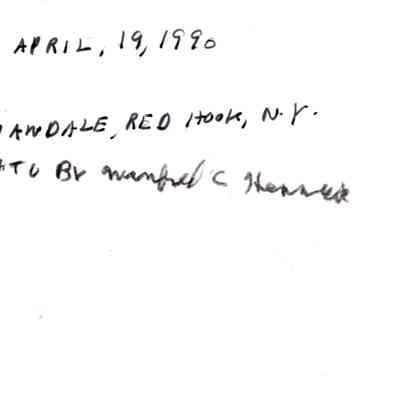 APRIL, 19, 1990
ANDALE, RED HOOK, N.Y.
TO BY Manfred C